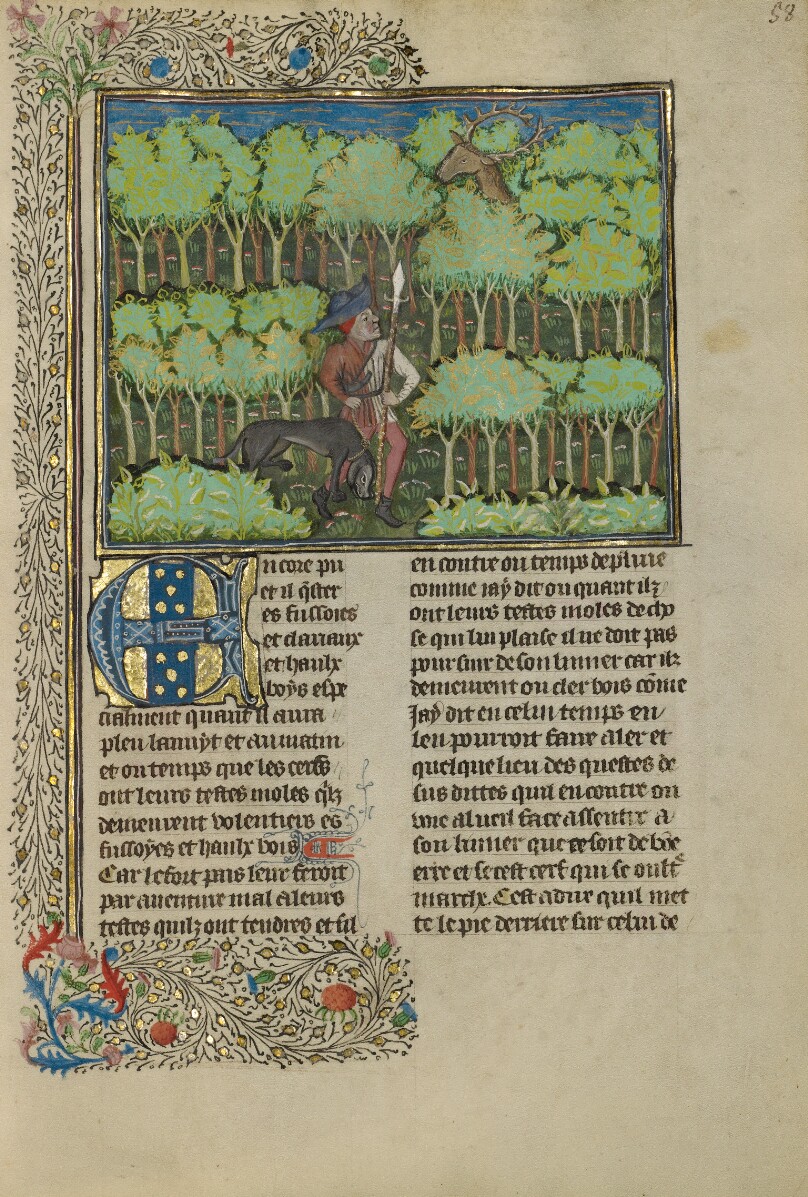 58
Encore pu
et il q̃ster
es fustoies
et clariaux
et haulx
boys espe
cialment quant il aura
pleu lannyt et au matin
et ou temps que les cerfs
ont leurs testes moles q̃lz
demeurent volentiers es
fustoyes et haulx bois
Car le fort pais leur feroit
par auenture mal a leurs
testes quilz ont tendres et sil
en contre ou temps de pluie
comme iay dit ou quant ilz
ont leurs testes moles de cho
se qui lui plaise il ne doit pas
poursuir de son limier car ilz
demeurent ou cler bois cõme
Jay dit en celui temps en
leu pourroit faire aler et
quelque lieu des questes de
sus dittes quil encontre ou
voie a lueil face assentir a
son limier que ce soit de bõe
erre et se cest cerf qui se oult
marche. Cest a dire quil met
te le pie derriere sur celui de